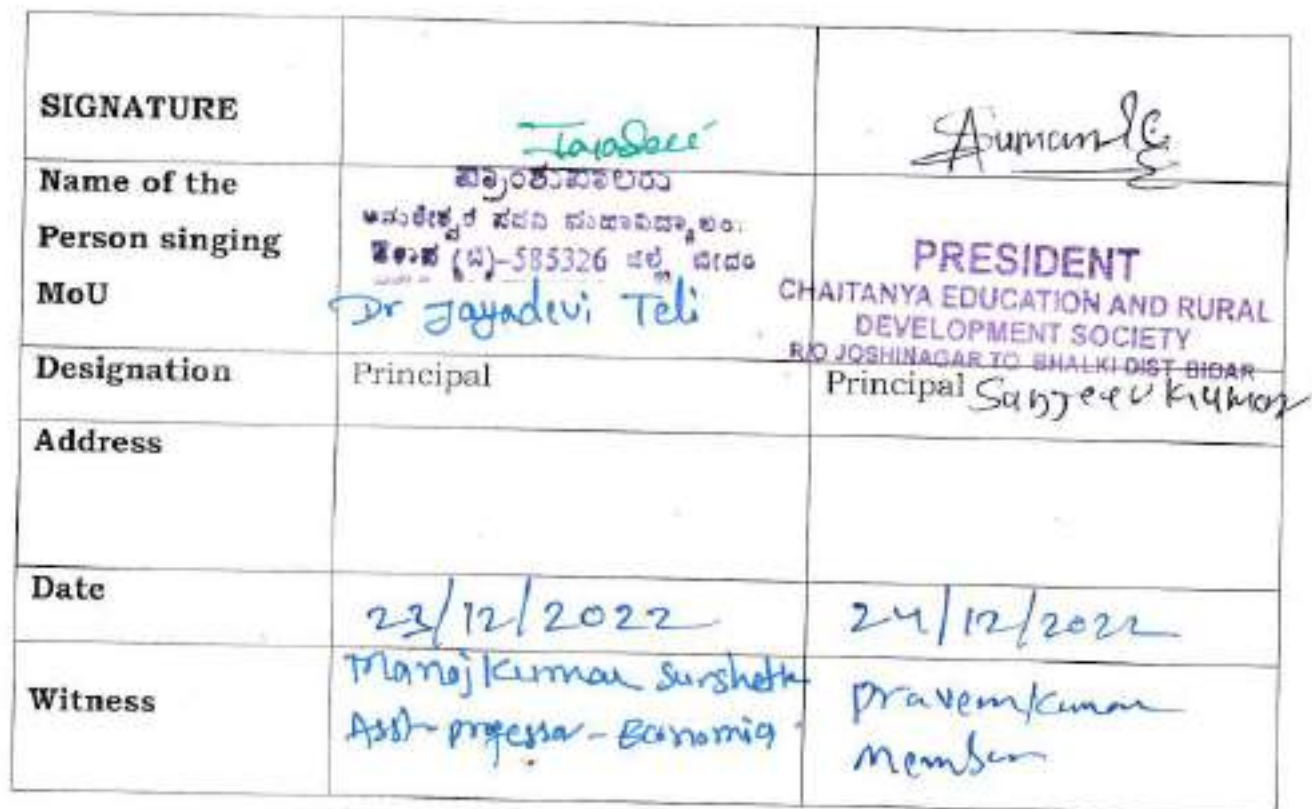 SIGNATURE
Name of the
Person singing
MoU
ಪ್ರಾಂಶುಪಾಲರು
ಅಮರೇಶ್ವರ ಪದವಿ ಮಹಾವಿದ್ಯಾಲಯ
(ಬಿ)-585326 ಬೀದರ
Dr Jayadevi Teli
PRESIDENT
CHAITANYA EDUCATION AND RURAL
DEVELOPMENT SOCIETY
R/O JOSHINAGAR TQ BHALKI DIST BIDAR
Designation Principal Principal Sanjeevkumar
Address
Date 23/12/2022 24/12/2022
Witness
Manojkumar Surshette
Asst professor - Economics
Pravemkumar
Member